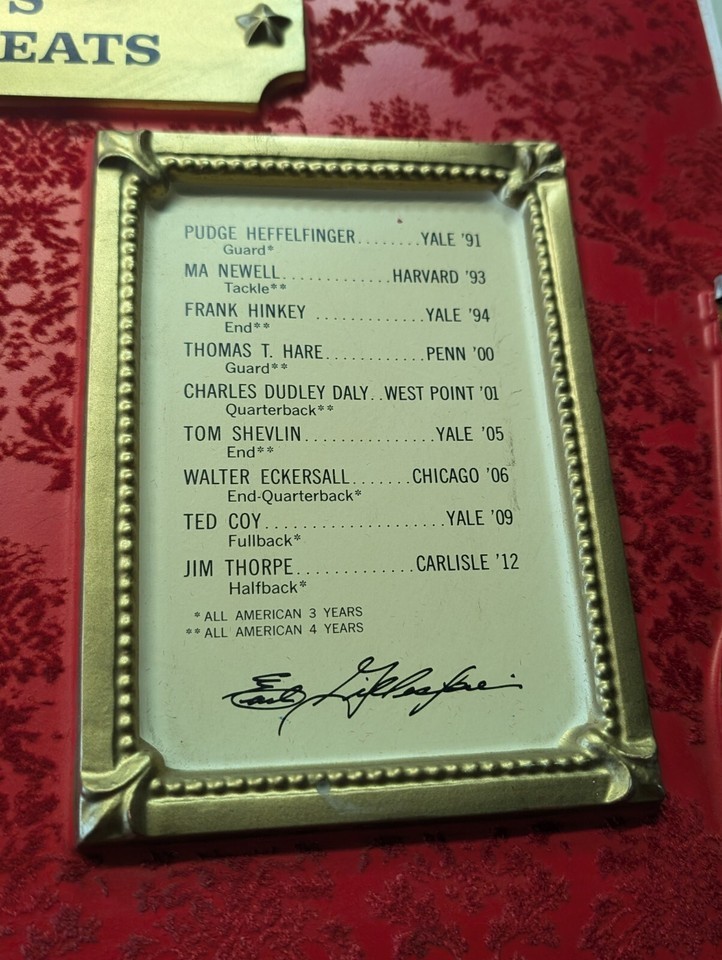 S
EATS
PUDGE HEFFELFINGER........YALE '91
Guard*
MA NEWELL.............HARVARD '93
Tackle**
FRANK HINKEY ..............YALE '94
End**
THOMAS T. HARE............PENN '00
Guard**
CHARLES DUDLEY DALY..WEST POINT '01
Quarterback**
TOM SHEVLIN...............YALE '05
End**
WALTER ECKERSALL.......CHICAGO '06
End-Quarterback*
TED COY.....................YALE '09
Fullback*
JIM THORPE.............CARLISLE '12
Halfback*
*ALL AMERICAN 3 YEARS
**ALL AMERICAN 4 YEARS
Earl Gillespie